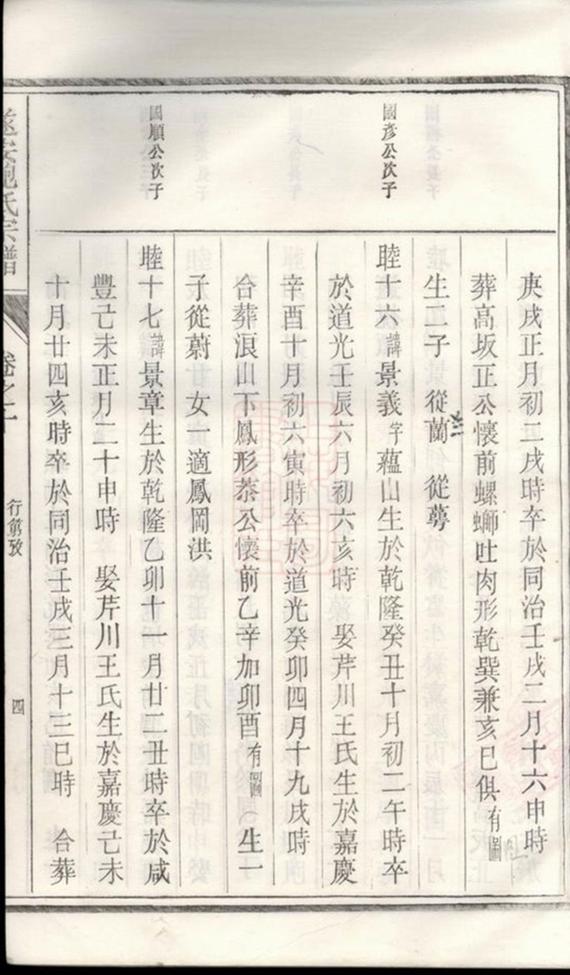 庚戌正月初二戌時卒於同治壬戌二月十六申時
葬高坂正公懷前螺螄吐肉形乾巽兼亥巳俱有圖
生二子　從蘭　從蕚
國彥公次子
睦十六諱景義字蘊山生於乾隆癸丑十月初二午時卒
於道光壬辰六月初六亥時　娶芹川王氏生於嘉慶
辛酉十月初六寅時卒於道光癸卯四月十九戌時
合葬浪山下鳳形泰公懷前乙辛加卯酉有圖　生一
子從蔚　女一適鳳岡洪
國順公次子
睦十七諱景章生於乾隆乙卯十一月廿二丑時卒於咸
豐己未正月二十申時　娶芹川王氏生於嘉慶己未
十月廿四亥時卒於同治壬戌三月十三巳時　合葬
遂安鮑氏宗譜
卷之
行第攷
四